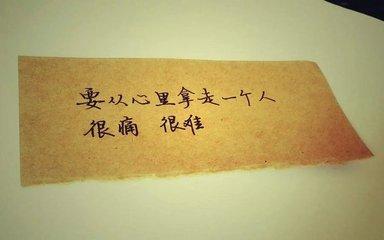 要从心里拿走一个人
很痛 很难